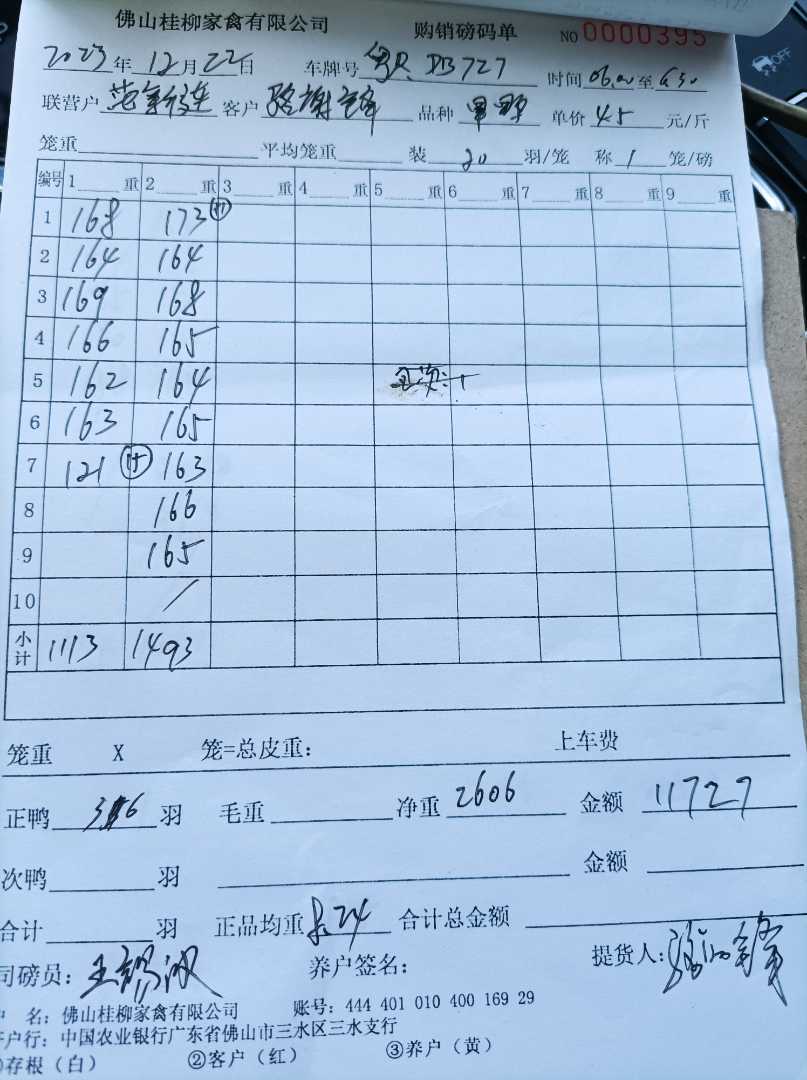 佛山桂柳家禽有限公司 购销磅码单 NO 0000395
2023年12月22日 车牌号 DB727 时间 06.00至6.30
联营户 客户 品种 单价 4.5 元/斤
笼重 平均笼重 装 20 羽/笼 称 1 笼/磅
编号 1 重 2 重 3 重 4 重 5 重 6 重 7 重 8 重 9 重
1 168 173
2 164 164
3 169 168
4 166 165
5 162 164
6 163 165
7 121 15 163
8 166
9 165
10 /
小计 1113 1493
笼重 X 笼=总皮重: 上车费
正鸭 羽 毛重 净重 2606 金额 11727
次鸭 羽 金额
合计 羽 正品均重 合计总金额
司磅员: 养户签名: 提货人:
户 名: 佛山桂柳家禽有限公司 账号: 444 401 010 400 169 29
开户行: 中国农业银行广东省佛山市三水区三水支行
存根(白) ②客户(红) ③养户(黄)